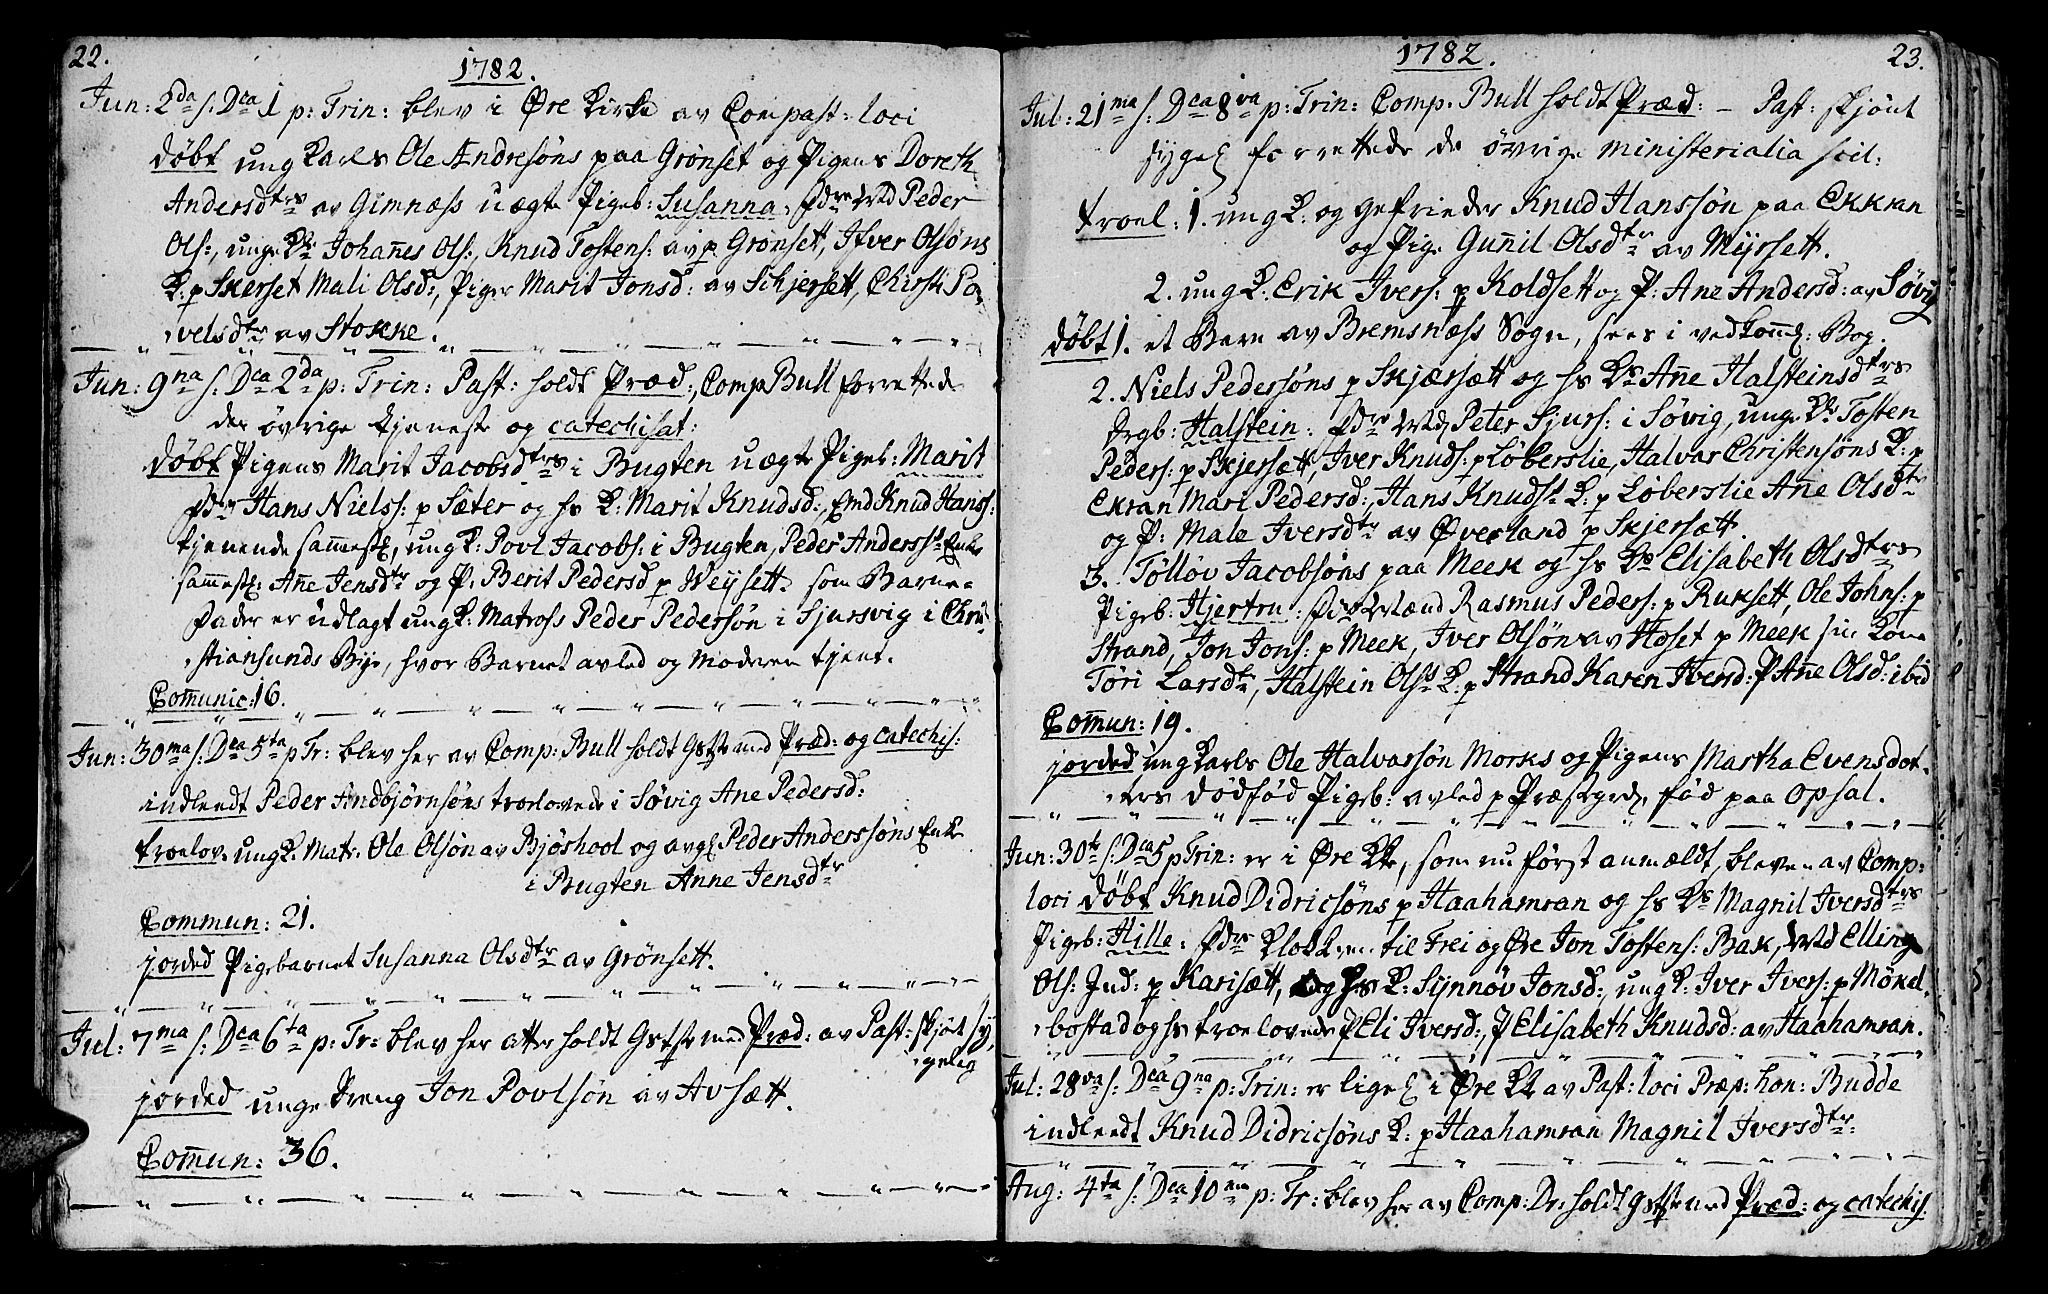 22.
1782.
Jun: 2da s: Dca 1 p: Trin: blev i Øre Kirke av Compast: loci
døbt ung Karls Ole Andresøns paa Grønset og Pigens Doreth
Andersdtrs av Gimnæss uægte Pigeb: Susanna. Fdre Peder
Ols:, unge Ke Johanes Ols:, Knud Tostens: av p Grønset, Ifver Olsøns
K: p Skerset Mali Olsd:, Piger Marit Jonsd: av Schjersett, Chirsti Po-
velsdtr av Stokke.
Jun: 9na s: Dca 2da p: Trin: Past: holdt Præd:, Comp Bull forrettede
den øvrige tjeneste og catechisat:
døbt Pigens Marit Jacobsdtrs i Bugten uægte Pigeb: Marit
Fdre Hans Niels: p Sæter og hs K: Marit Knudsd:, Emd Knud Hans:
tjenende sammest, ung K: Povl Jacobs: i Bugten, Peder Anderss Enke
sammest: Ane Jensdtr og P: Berit Pedersd p Weysett. som Barne-
fader er udlagt ung K: Matross Peder Pedersøn i Sjursvig i Chri-
stiansunds Bye, hvor Barnet avled og Moderen tjent.
Comunic: 16.
Jun: 30ma s: Dca 5ta p Tr: blev her av Comp: Bull holdt Gstste med Præd: og catechis:
indleedt Peder Andbjørnsøns troelovede i Søvig Ane Pedersd:
troelov. ung K: Matr. Ole Olsøn av Bjøshool og avg Peder Anderssøns Enke
i Bugten Anne Jensdtr
Commun: 21.
jorded Pigebarnet Susanna Olsdtr av Grønsett.
Jul: 7ma s: Dca 6ta p: Tr: blev her atter holdt Gstste med Præd: av Past: skjøt sy-
geleg
jorded unge Dreng Jon Povlsøn av Avsætt.
Comun: 36.
1782.
23.
Jul: 21ma s: Dca 8va p: Trin: Comp. Bull holdt Præd: - Past: skjønt
sygel forrettede de øvrige ministerialia scil:
troel: 1. ung K: og gefrieder Knud Hanssøn paa Ekkran
og Pige Gunil Olsdtr av Meyrsett.
2. ung K: Erik Ivers: p Koldsett og P: Ane Andersd: av Søvig
døbt 1. et Barn av Bremsnæss Sogn, sees i vedkomme: Bog.
2. Niels Pedersøns p Skjærsætt og hs Ks Ane Halsteinsdtrs
Drgb: Halstein. Fdre Peter Sjurs: i Søvig, unge Ke Tosten
Peders: p Skjersætt, Iver Knuds: p Løberslie, Halvar Christensøns K: p
Ekran Mari Pedersd:, Hans Knuds K: p Løberslie Ane Olsdtr
og P: Male Iversdtr av Øverland p Skjersætt.
3. Tølløv Jacobsøns paa Meek og hs Ks Elisabeth Olsdtrs
Pigeb: Hjertru. Fdre Rasmus Peders: p Ruksett, Ole Johns: p
Strand, Jon Jons: p Meek, Iver Olsøn av Hoset p Meek sin Kone
Tøri Larsdtr, Halstein Ols K: p Strand Karen Iversd: P Ane Olsd: ibid
Comun: 19.
jorded ung Karls Ole Halvarsøn Morks og Pigens Martha Evensdot-
ters dødfød Pigeb: avled p Præstgrdn fød paa Opsal.
Jun: 30te s: Dca 5 p Trin: er i Øre Kke, som nu først anmældt, bleven av Comp:
loci døbt Knud Didricsøns p Haahamran og hs Ks Magnil Iversdtrs
Pigeb: Hille. Fdre Klokkeren til Frei og Øre Jon Tostens: Bak, Elling
Ols: Ind: p Karisætt, og hs K: Synnøv Jonsd:, ung K: Iver Ivers: p Møkel-
bostad og hs troelovede P Eli Iversd:, P Elisabeth Knudsd: av Haahamran.
Jul: 28va s: Dca 9na p: Trin: er ligel i Øre Kk av Past: loci Præp: hon: Budde
indleedt Knud Didricsøns K: p Haahamran Magnil Iversdtr:
Aug: 4ta s: Dca 10ma p: Tr: blev her av Comp: Dr: holdt gstste med Præd: og catechis.